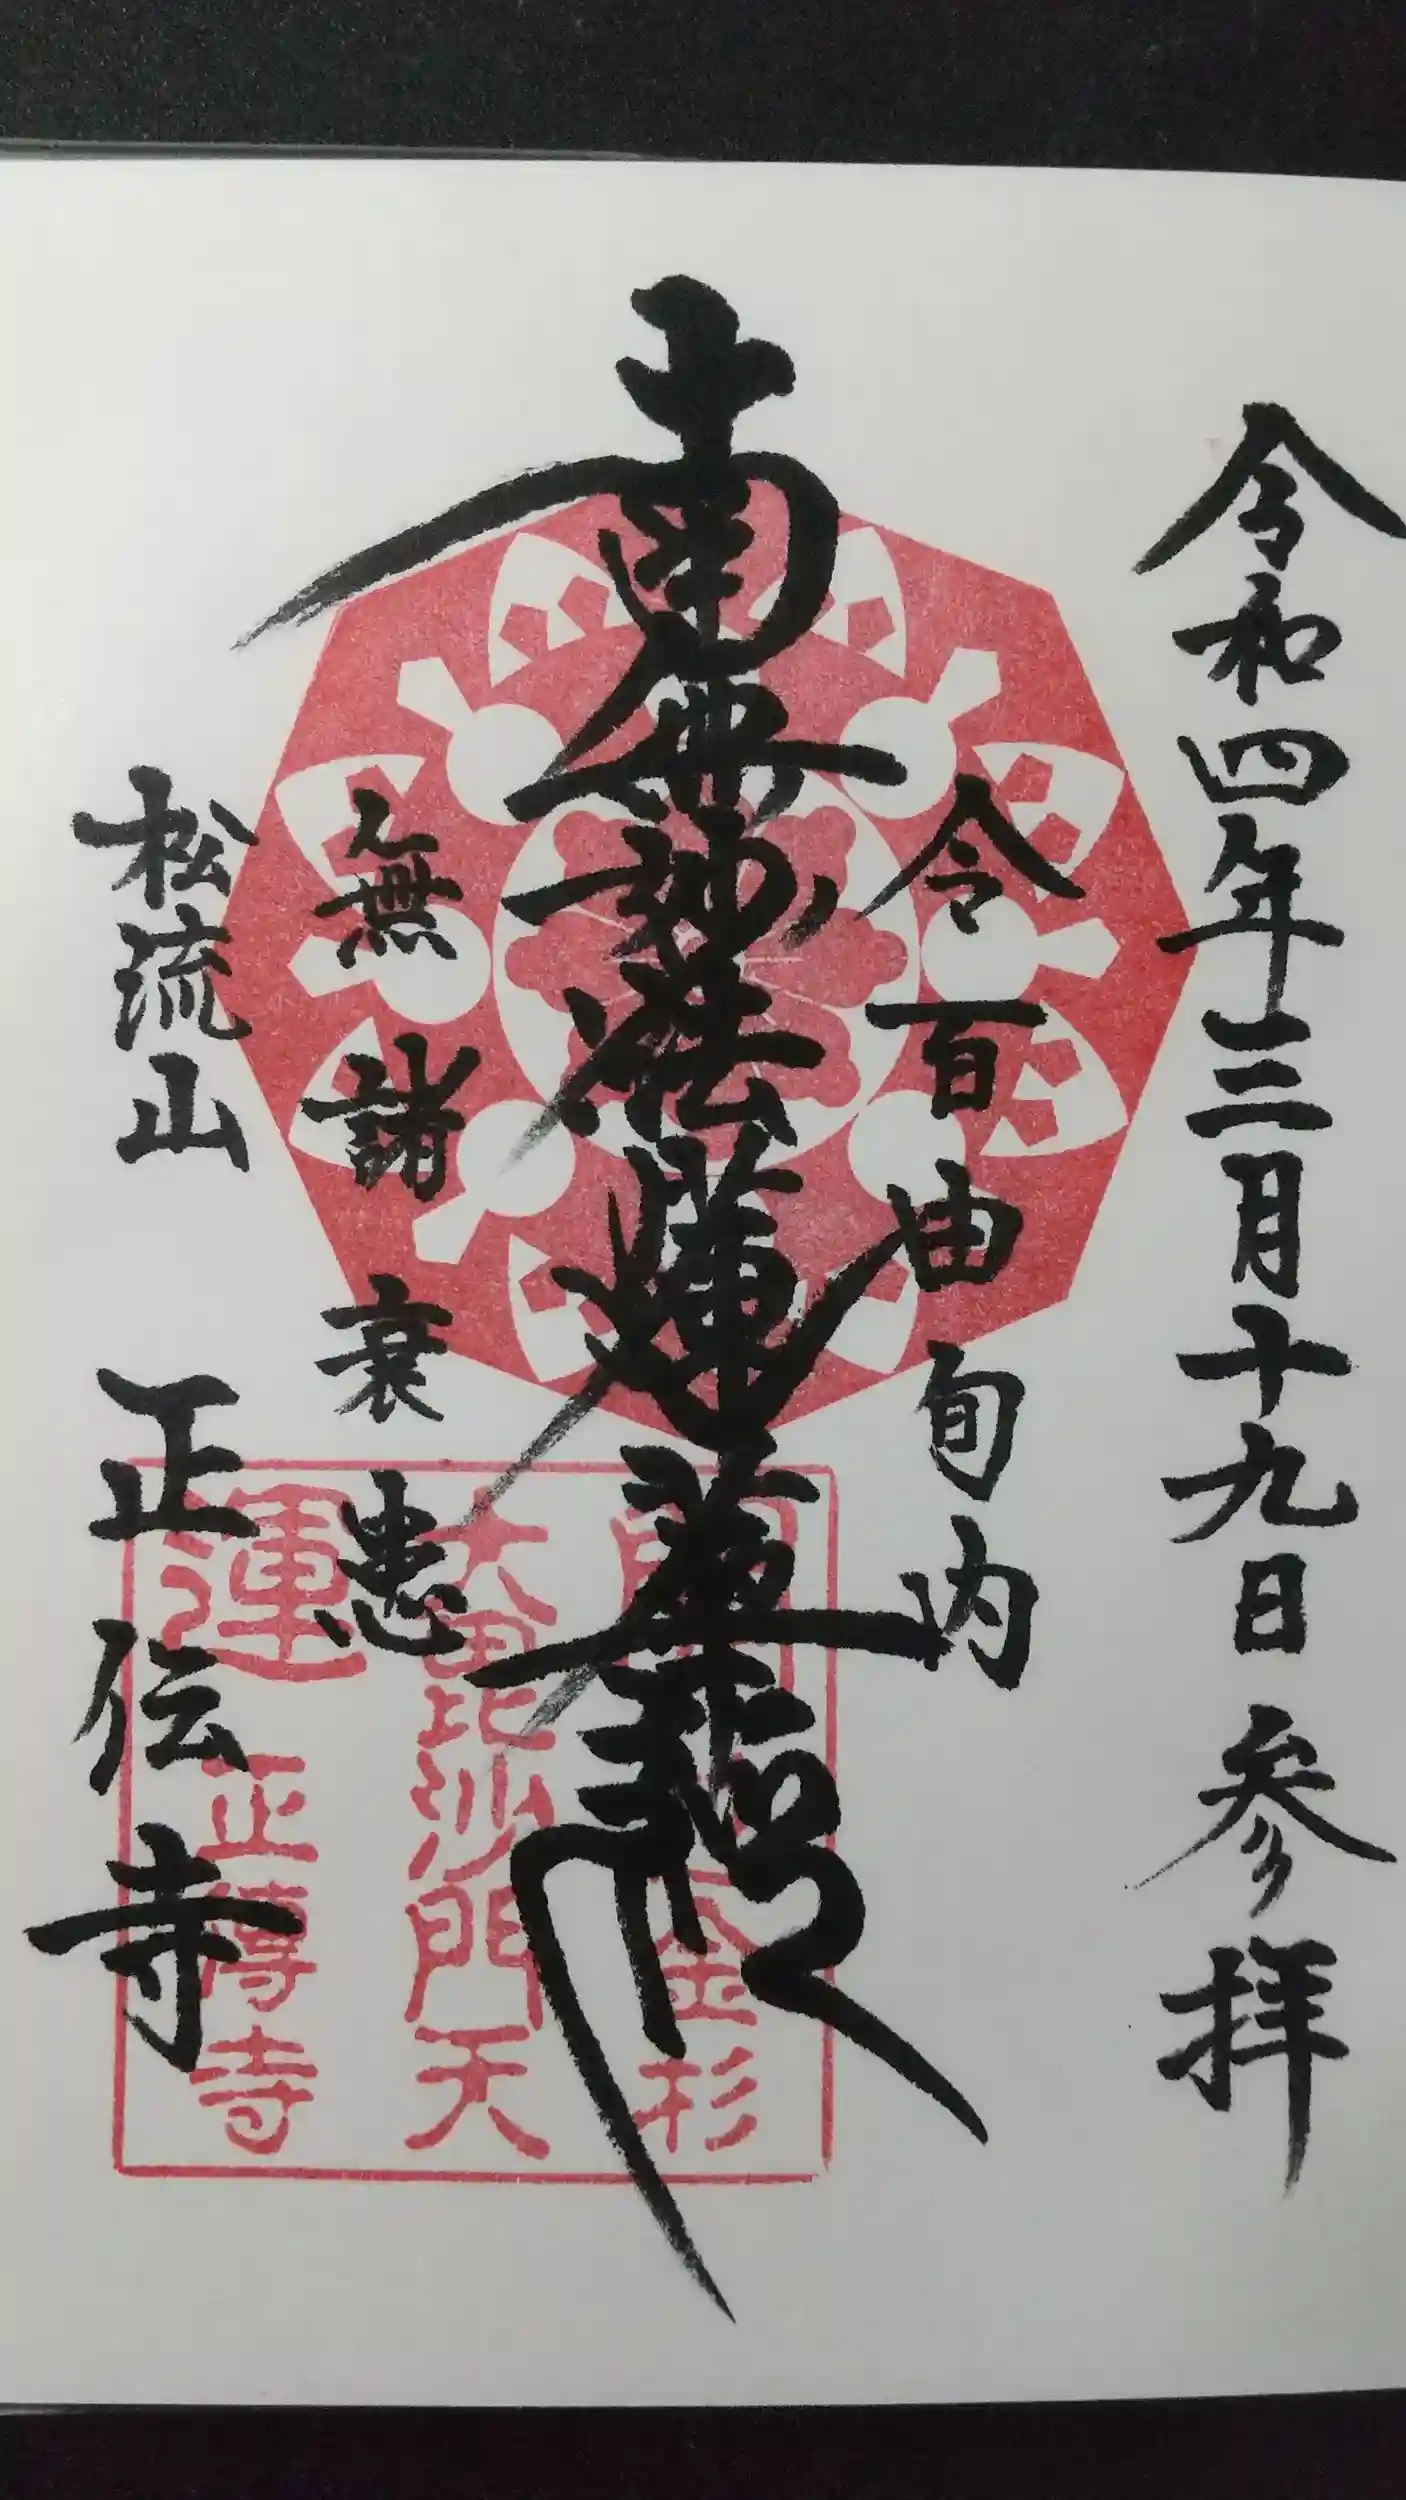 令和四年三月十九日参拝
令百由旬内
南無妙法蓮華経
無諸衰患
松流山 正伝寺
金杉
大毘沙門天
運 正傳寺